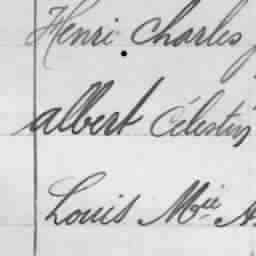 Henri Charles
albert Célestin
Louis Mie A